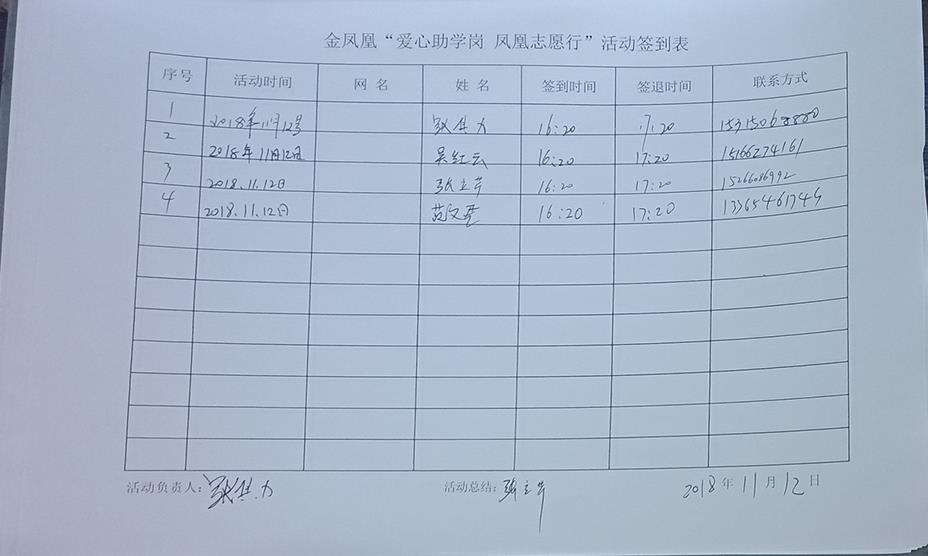 金凤凰“爱心助学岗 凤凰志愿行”活动签到表
序号 活动时间 网名 姓名 签到时间 签退时间 联系方式
1 2018年11月12号 16:20 17:20
2 2018年11月12日 吴红云 16:20 17:20 15166274161
3 2018.11.12日 张立芹 16:20 17:20 15266086992
4 2018.11.12日 16:20 17:20 13365461745
活动负责人: 活动总结: 张立芹 2018年11月12日